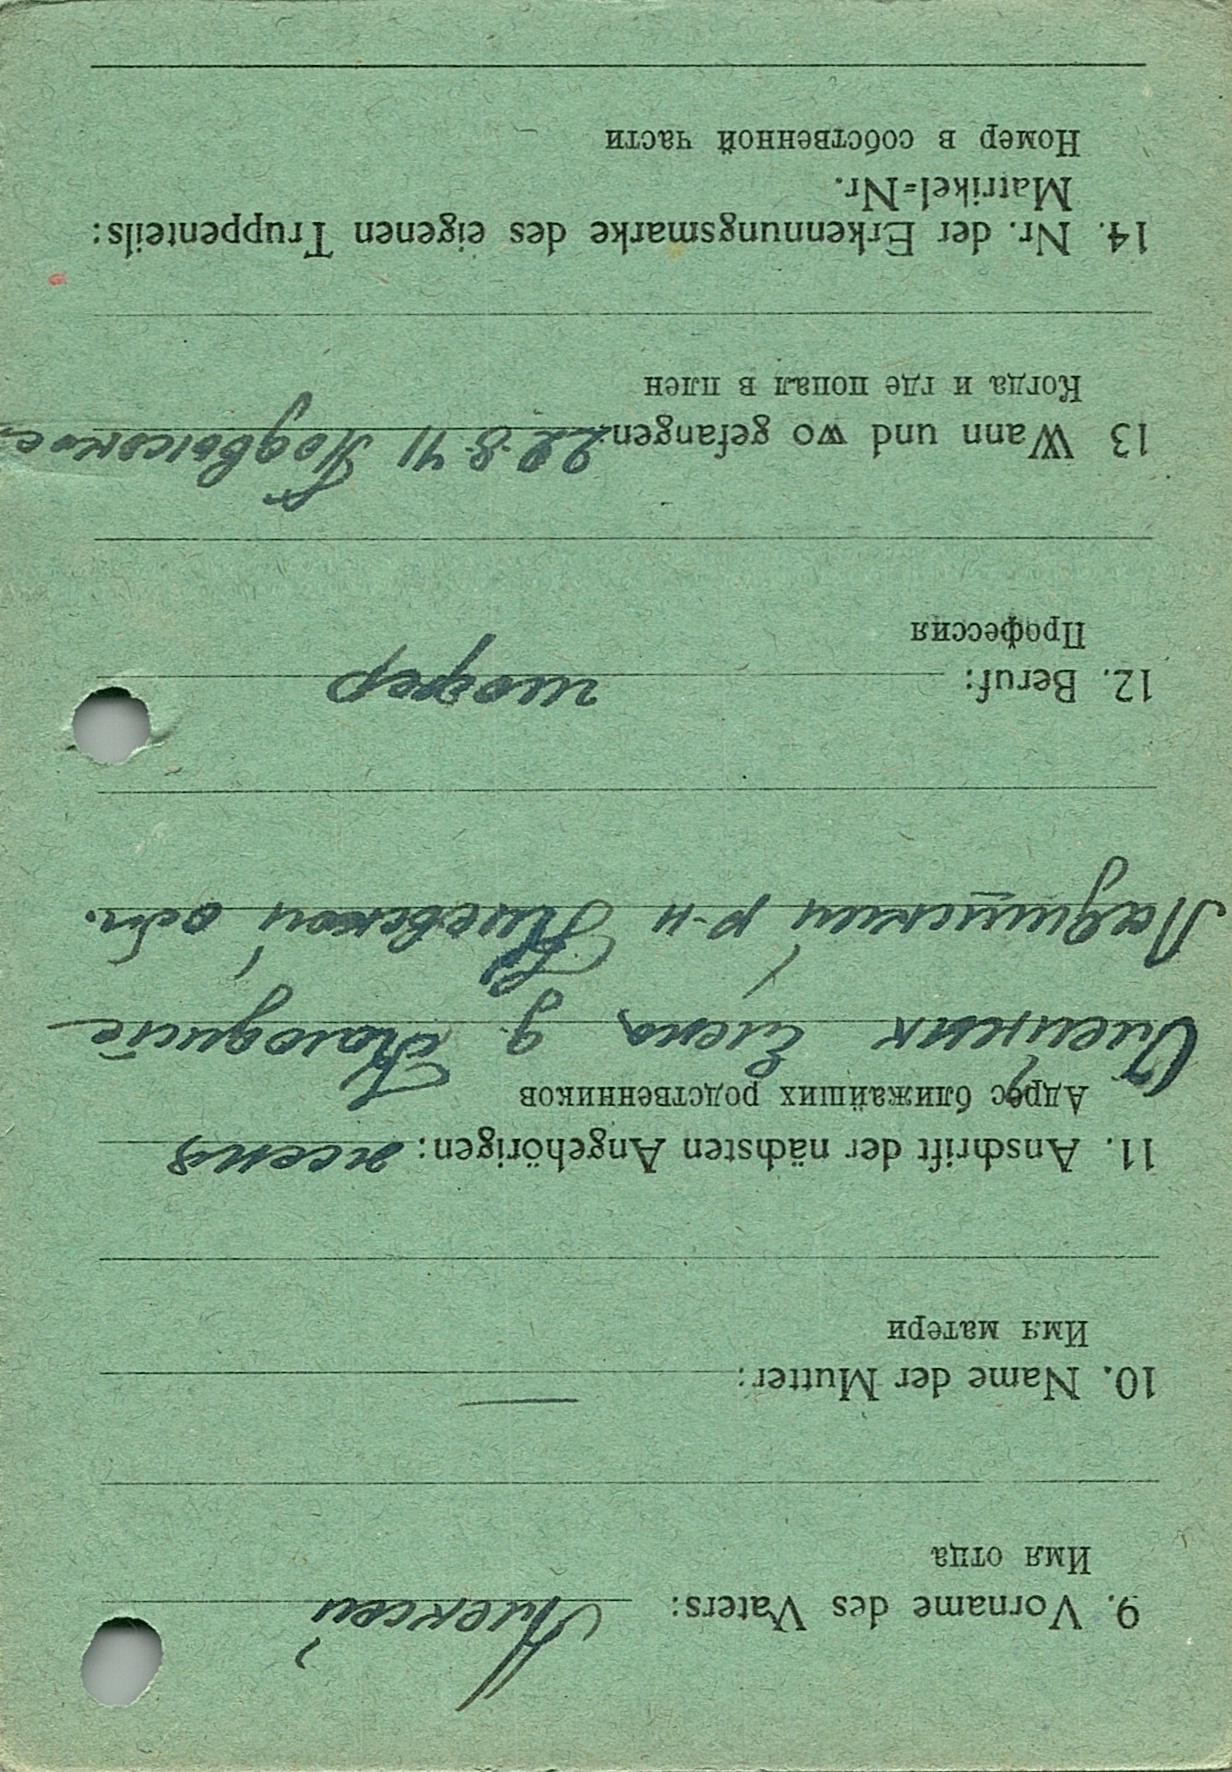 9. Vorname des Vaters: Алексей
Имя отца
10. Name der Mutter: —
Имя матери
11. Anschrift der nächsten Angehörigen: жена
Адрес ближайших родственников
Елена д.
р-н Киевской обл.
12. Beruf: шофер
Профессия
13 Wann und wo gefangen 22.8.41 Подвысокое
Когда и где попал в плен
14. Nr. der Erkennungsmarke des eigenen Truppenteils:
Matrikel=Nr.
Номер в собственной части